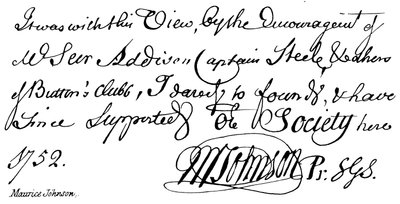 It was with this View, by the Encouragemt. of
Mr Secr Addison Captain Steele, & others
of Button's Clubb, I dared to found, & have
Since Supported the Society here
1752. MJohnson Pr. SGS.
Maurice Johnson.